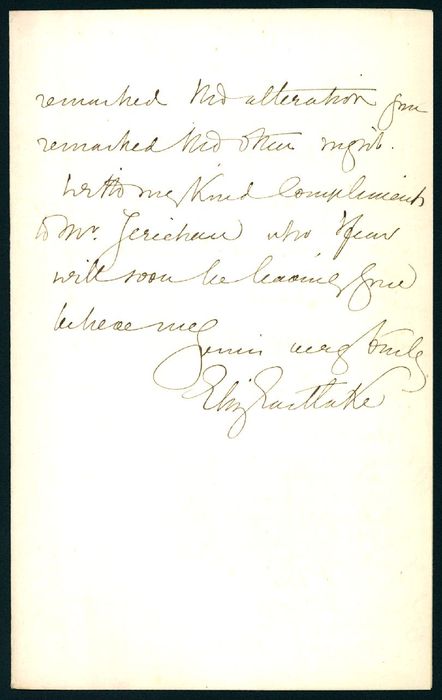 remarked the alteration you
remarked the other night.
With my kind compliments
to Mr. Jerichau who I fear
will soon be leaving you
believe me
Yours very truly
Eliz Eastlake